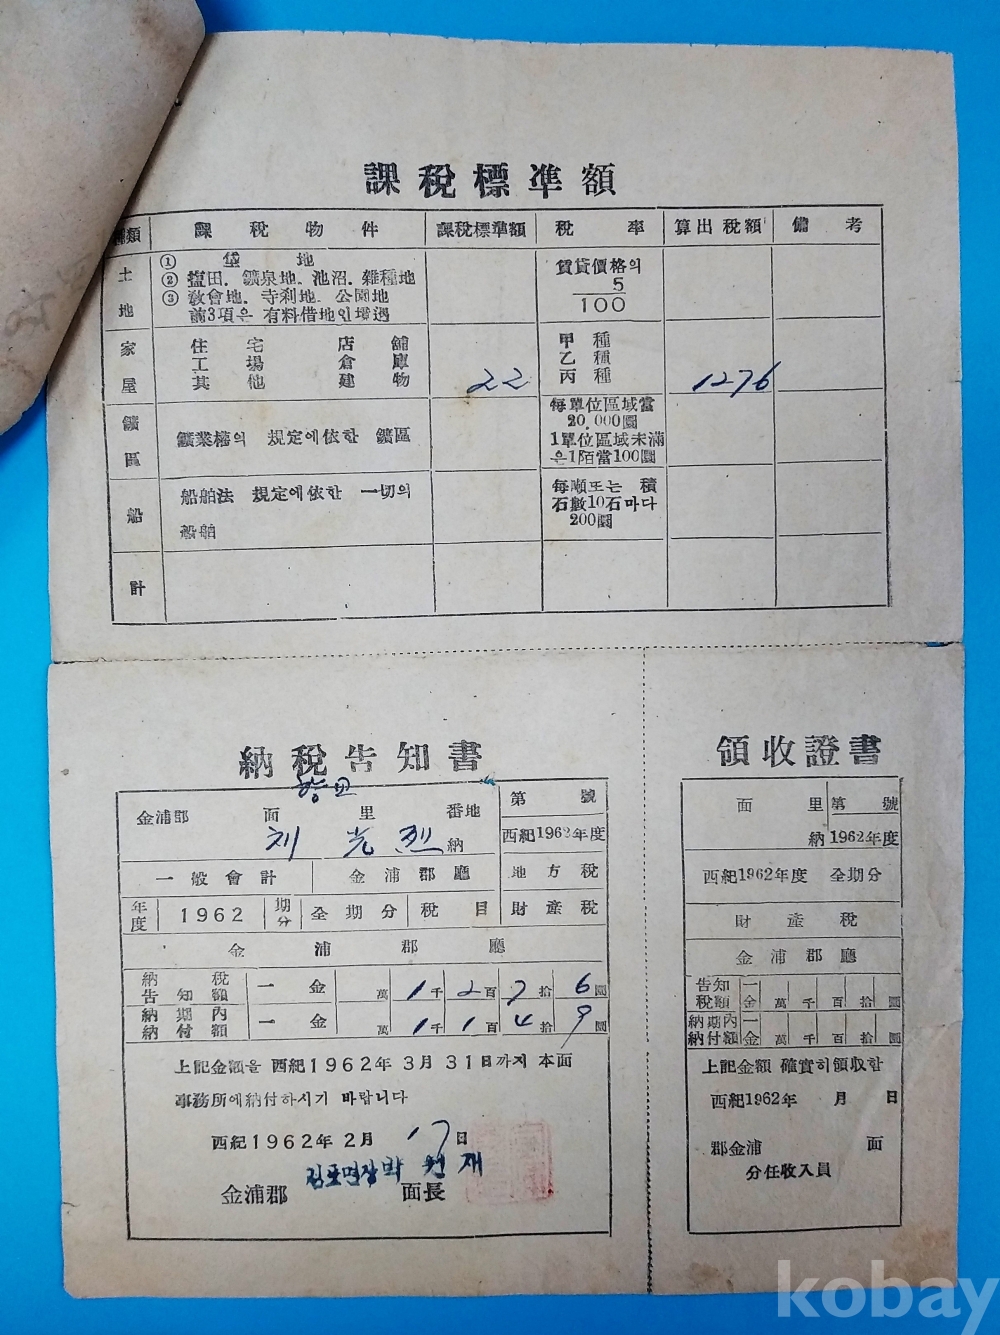 課稅標準額
種類 課稅物件 課稅標準額 稅率 算出稅額 備考
土地
① 垈地
② 塩田. 鑛泉地. 池沼. 雜種地
③ 敎會地. 寺刹地. 公園地
前3項은 有料借地인境遇
賃貸價格의
5
100
家屋
住宅 店舖
工場 倉庫
其他 建物
22
甲種
乙種
丙種
1276
鑛區
鑛業權의 規定에依한 鑛區
每單位區域當
20,000圜
1單位區域未滿
은1陌當100圜
船
船舶法 規定에依한 一切의
船舶
每順또는 積
石數10石마다
200圜
計
納稅告知書
金浦郡 面 里 番地
劉光烈 納
第 號
西紀1962年度
一般會計 金浦郡廳 地方稅
年度 1962 期分 全期分 稅目 財產稅
金浦郡廳
納稅告知額 一金 萬 1千 2百 7拾 6圜
納期內納付額 一金 萬 1千 1百 4拾 9圜
上記金額을 西紀1962年 3月 31日까지 本面
事務所에納付하시기 바랍니다
西紀1962年2月 17日
김포면장박 원재
金浦郡 面長
領收證書
面 里 第 號
納 1962年度
西紀1962年度 全期分
財產稅
金浦郡廳
告知稅額 一金 萬 千 百 拾 圜
納期內納付額 一金 萬 千 百 拾 圜
上記金額 確實히領收함
西紀1962年 月 日
郡金浦 面
分任收入員
kobay